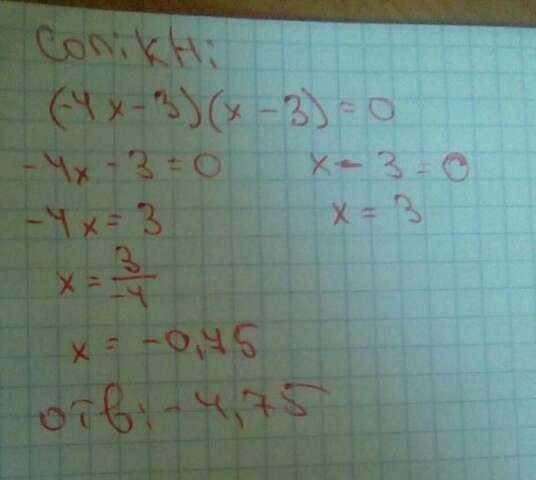 (-4x-3)(x-3)=0
-4x-3=0 x-3=0
-4x=3 x=3
x=3/-4
x=-0,75
отв:-4,75